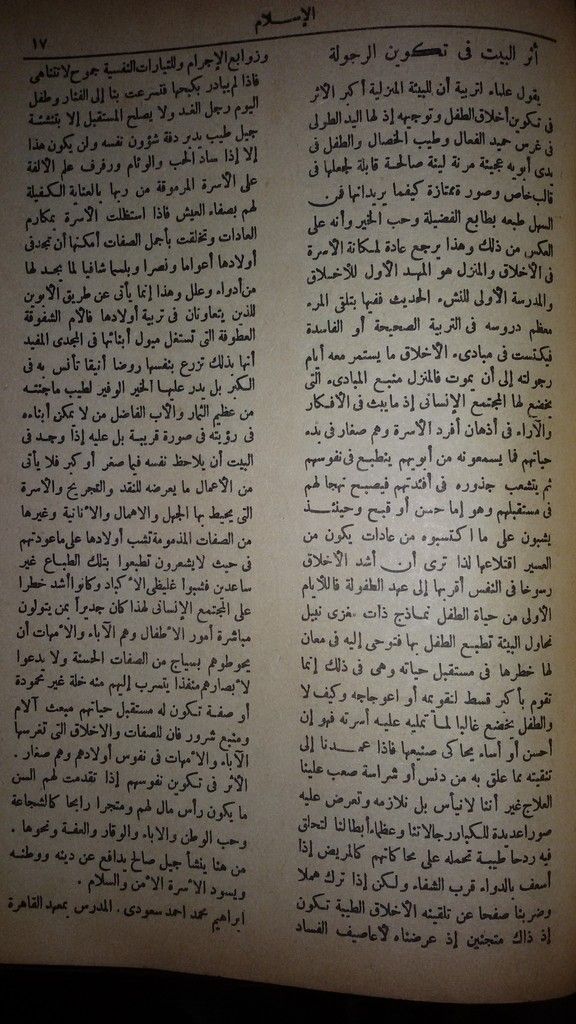 الإسلام
١٧
أثر البيت فى تكوين الرجولة
يقول علماء التربية أن للبيئة المنزلية أكبر الأثر
فى تكوين أخلاق الطفل وتوجيهه إذ لها اليد الطولى
فى غرس حميد الفعال وطيب الخصال والطفل فى
يدى أبويه عجينة مرنة لينة صالحة قابلة لجعلها فى
قالب خاص وصورة ممتازة كيفما يريدانها فمن
السهل طبعه بطابع الفضيلة وحب الخير وأنه على
العكس من ذلك وهذا يرجع عادة لمكانة الأسرة
فى الأخلاق والمنزل هو المهد الأول للأخلاق
والمدرسة الأولى للنشء الحديث ففيها يتلقى المرء
معظم دروسه فى التربية الصحيحة أو الفاسدة
فيكتسب فى مبادىء الأخلاق ما يستمر معه أيام
رجولته إلى أن يموت فالمنزل منبع المبادىء التى
يخضع لها المجتمع الإنسانى إذ ما يبث فى الأفكار
والآراء فى أذهان أفرد الأسرة وهم صغار فى بدء
حياتهم فما يسمعونه من أبويهم ينطبع فى نفوسهم
ثم يتشعب جذوره فى أفئدتهم فيصبح نهجا لهم
فى مستقبلهم وهو إما حسن أو قبيح وحينئذ
يشبون على ما اكتسبوه من عادات يكون من
العسير اقتلاعها لذا ترى أن أشد الأخلاق
رسوخا فى النفس أقربها إلى عهد الطفولة فالأيام
الأولى من حياة الطفل نماذج ذات مغزى نبيل
تحاول البيئة تطبيع الطفل بها فتوحى إليه فى معان
لها خطرها فى مستقبل حياته وهى فى ذلك إنما
تقوم بأكبر قسط لتقويمه أو اعوجاجه وكيف لا
والطفل يخضع غالبا لما تمليه عليه أسرته فهو إن
أحسن أو أساء يحاكى صنيعها فاذا عمدنا إلى
تنقيته مما علق به من دنس أو شراسة صعب علينا
العلاج غير أننا لانيأس بل نلازمه وتعرض عليه
صوراعديدة للكبار رجالاتنا وعظماء أبطالنا لتخلق
فيه ردحا طيبة تحمله على محاكاتهم كالمريض إذا
أسعف بالدواء قرب الشفاء ولكن إذا ترك هملا
وضربنا صفحا عن تلقينه الأخلاق الطيبة نكون
إذ ذاك متجنين إذ عرضناه لأعاصيف الفساد
وزوابع الإجرام وللتيارات النفسية جموح لاتتناهى
فاذا لم يبادر بكبحها فتسرعت بنا إلى الفنار وطفل
اليوم رجل الغد ولا يصلح المستقبل إلا بتنشئة
جيل طيب يدبر دفة شؤون نفسه ولن يكون هذا
إلا إذا ساد الحب والوئام ورفرف علم الألفة
على الأسرة المرموقة من ربها بالعناية الكفيلة
لهم بصفاء العيش فاذا استظلت الأسرة بمكارم
العادات وتخلقت بأجمل الصفات أمكنها أن تجدفى
أولادها أعوانا ونصرا وبلسما شافيا لما يجد لها
من أدواء وعلل وهذا إنما يأتى عن طريق الأبوين
للذين يتعاونان فى تربية أولادها فالأم الشفوقة
العطوفة التى تستغل ميول أبنائها فى المجدى المفيد
أنها بذلك تزرع بنفسها روضا أنيقا تأنس به فى
الكبر بل يدر عليها الخير الوفير لطيب ماجنته
من عظيم الثمار والأب الفاضل من لا تمكن أبناءه
فى رؤيته فى صورة قريبة بل عليه إذا وجد فى
البيت أن يلاحظ نفسه فيما صغر أو كبر فلا يأتى
من الأعمال ما يعرضه للنقد والتجريح والأسرة
التى يحيط بها الجهل والاهمال والأنانية وغيرها
من الصفات المذمومة تشب أولادها على ماعودتهم
فى حيث لايشعرون تطبعوا بتلك الطباع غير
ساعدين فشبوا غليظى الأكباد وكانوا أشد خطرا
على المجتمع الإنسانى لهذا كان جديراً بمن يتولون
مباشرة أمور الأطفال وهم الآباء والأمهات أن
يحوطوهم بسياج من الصفات الحسنة ولا يدعوا
لأبصارهم منفذا يتسرب إليهم منه خلة غير محمودة
أو صفة تكون له مستقبل حياتهم مبعث آلام
ومنبع شرور فان للصفات والاخلاق التى تغرسها
الآباء والأمهات فى نفوس أولادهم وهم صغار .
الأثر فى تكوين نفوسهم إذا تقدمت لهم السن
ما يكون رأس مال لهم ومتجرا رابحا كالشجاعة
وحب الوطن والاباء والوقار والعفة ونحوها .
من هنا ينشأ جيل صالح يدافع عن دينه ووطنه
ويسود الأسرة الأمن والسلام .
ابراهيم محمد احمد سعودى . المدرس بمعهد القاهرة